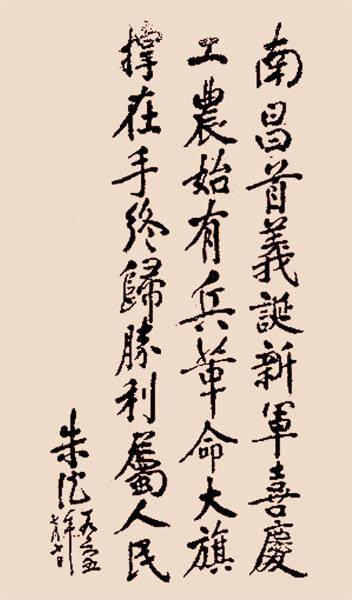 南昌首義誕新軍喜慶
工農始有兵革命大旗
撑在手終歸勝利屬人民
朱德